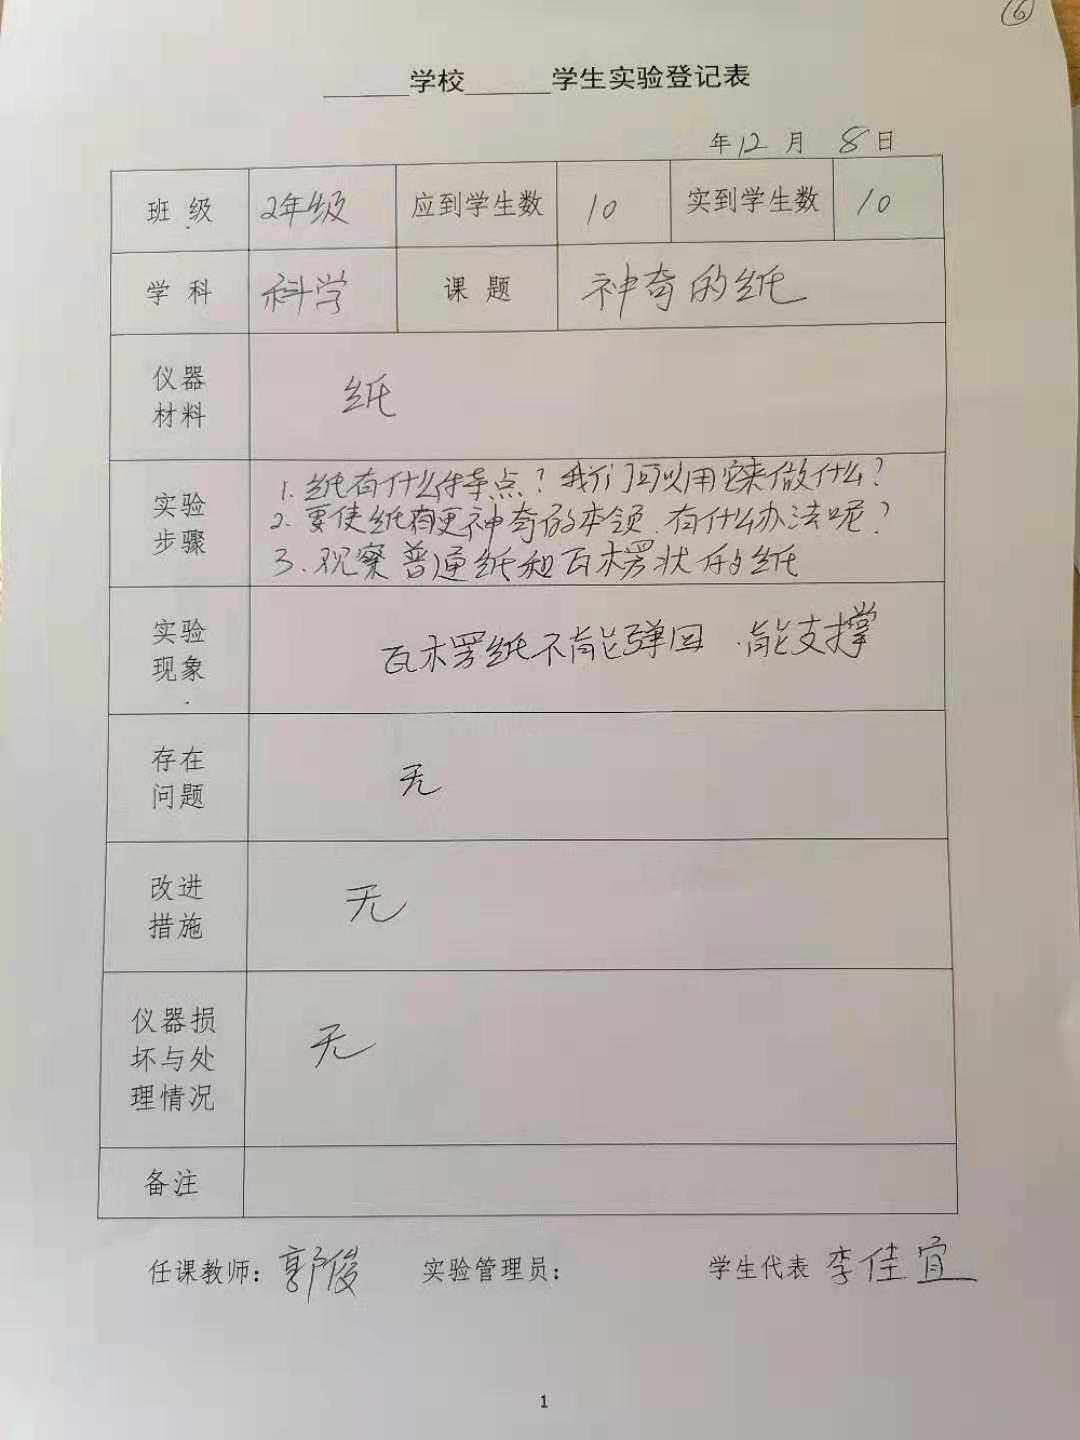 6
______学校______学生实验登记表
年12月 8日
班 级 2年级 应到学生数 10 实到学生数 10
学 科 科学 课 题 神奇的纸
仪器
材料
纸
实验
步骤
1. 纸有什么特点？我们可以用它来做什么？
2. 要使纸有更神奇的本领.有什么办法呢？
3. 观察普通纸和瓦楞状的纸
实验
现象
瓦楞纸不能弹回 .能支撑
存在
问题
无
改进
措施
无
仪器损
坏与处
理情况
无
备注
任课教师：郭俊 实验管理员： 学生代表 李佳宜
1